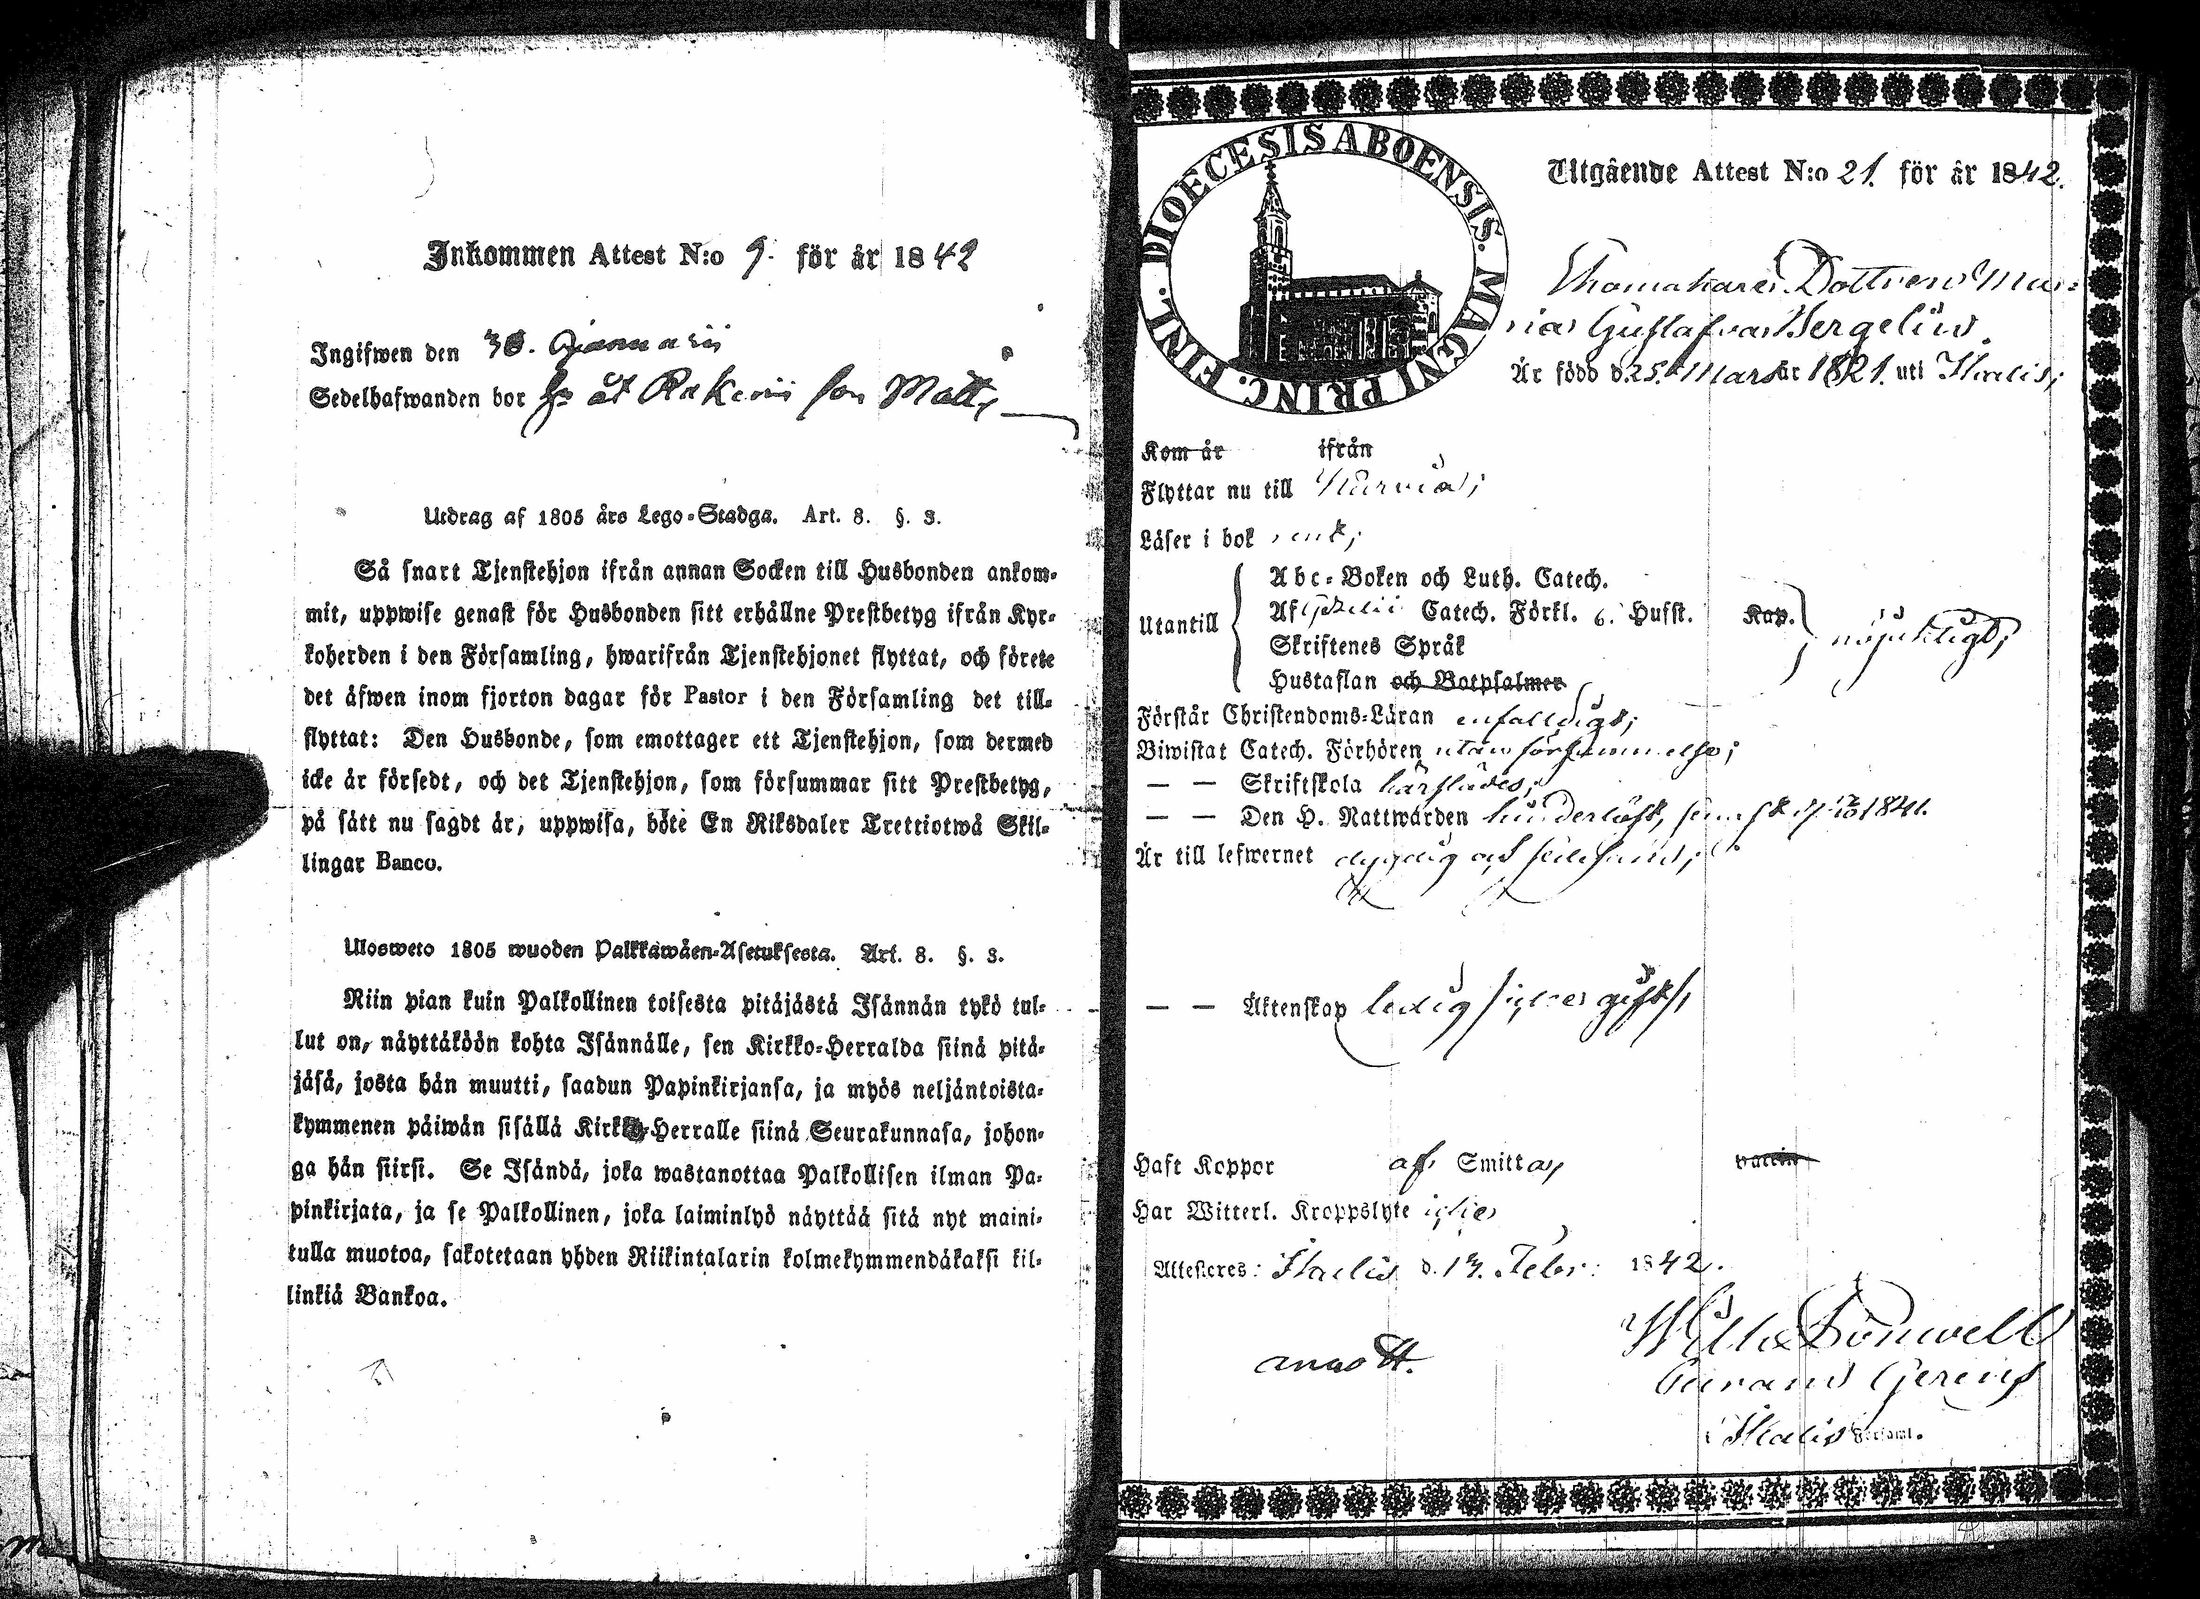 Inkommen Attest N:o 9. för år 1842
Ingifwen den 30. Januarii
Sedelhafwanden bor på
Utdrag af 1805 års Lego-Stadga. Art. 8. §. 3.
Så snart Tjenstehjon ifrån annan Socken till Husbonden ankom-
mit, uppwise genast för Husbonden sitt erhållne Prestbetyg ifrån Kyr-
koherden i den Församling, hwarifrån Tjenstehjonet flyttat, och förete
det äfwen inom fjorton dagar för Pastor i den Församling det till-
flyttat: Den Husbonde, som emottager ett Tjenstehjon, som dermed
icke är försedt, och det Tjenstehjon, som försummar sitt Prestbetyg,
på sätt nu sagdt är, uppwisa, böte En Riksdaler Trettiotwå Skil-
lingar Banco.
Ulosweto 1805 wuoden Palkkawäen-Asetuksesta. Art. 8. §. 3.
Niin pian kuin Palkollinen toisesta pitäjästä Isännän tykö tul-
lut on, näyttäköön kohta Isännälle, sen Kirkko-Herralda siinä pitä-
jäsä, josta hän muutti, saadun Papinkirjansa, ja myös neljäntoista-
kymmenen päiwän sisällä Kirkko-Herralle siinä Seurakunnasa, johon-
ga hän siirsi. Se Isändä, joka wastanottaa Palkollisen ilman Pa-
pinkirjata, ja se Palkollinen, joka laiminlyö näyttää sitä nyt maini-
tulla muotoa, sakotetaan yhden Riikintalarin kolmekymmendäkaksi kil-
linkiä Bankoa.
DIOECESIS ABOENSIS. MAGNI PRINC. FINL.
Utgående Attest N:o 21. för år 1842.
Dottren Ma-
ria Gustafva
Är född d. 25. Mars år 1821. uti Itulis;
Kom år ifrån
Flyttar nu till
Läser i bok
Utantill
Abc-Boken och Luth. Catech.
Af Catech. Förkl. 6. Hufst. Kap.
Skriftenes Språk nöjaktigt;
Hustaflan och Botpsalmer
Förstår Christendoms-Läran enfaldigt;
Biwistat Catech. Förhören utan försummelse;
— — Skriftskola härstädes;
— — Den H. Nattwarden 1841.
Är till lefwernet dygdig och
— — Äktenskap ledig
Haft Koppor af Smittay
Har Witterl. Kroppslyte
Attesteres: d. 13. Febr: 1842.
Församl.